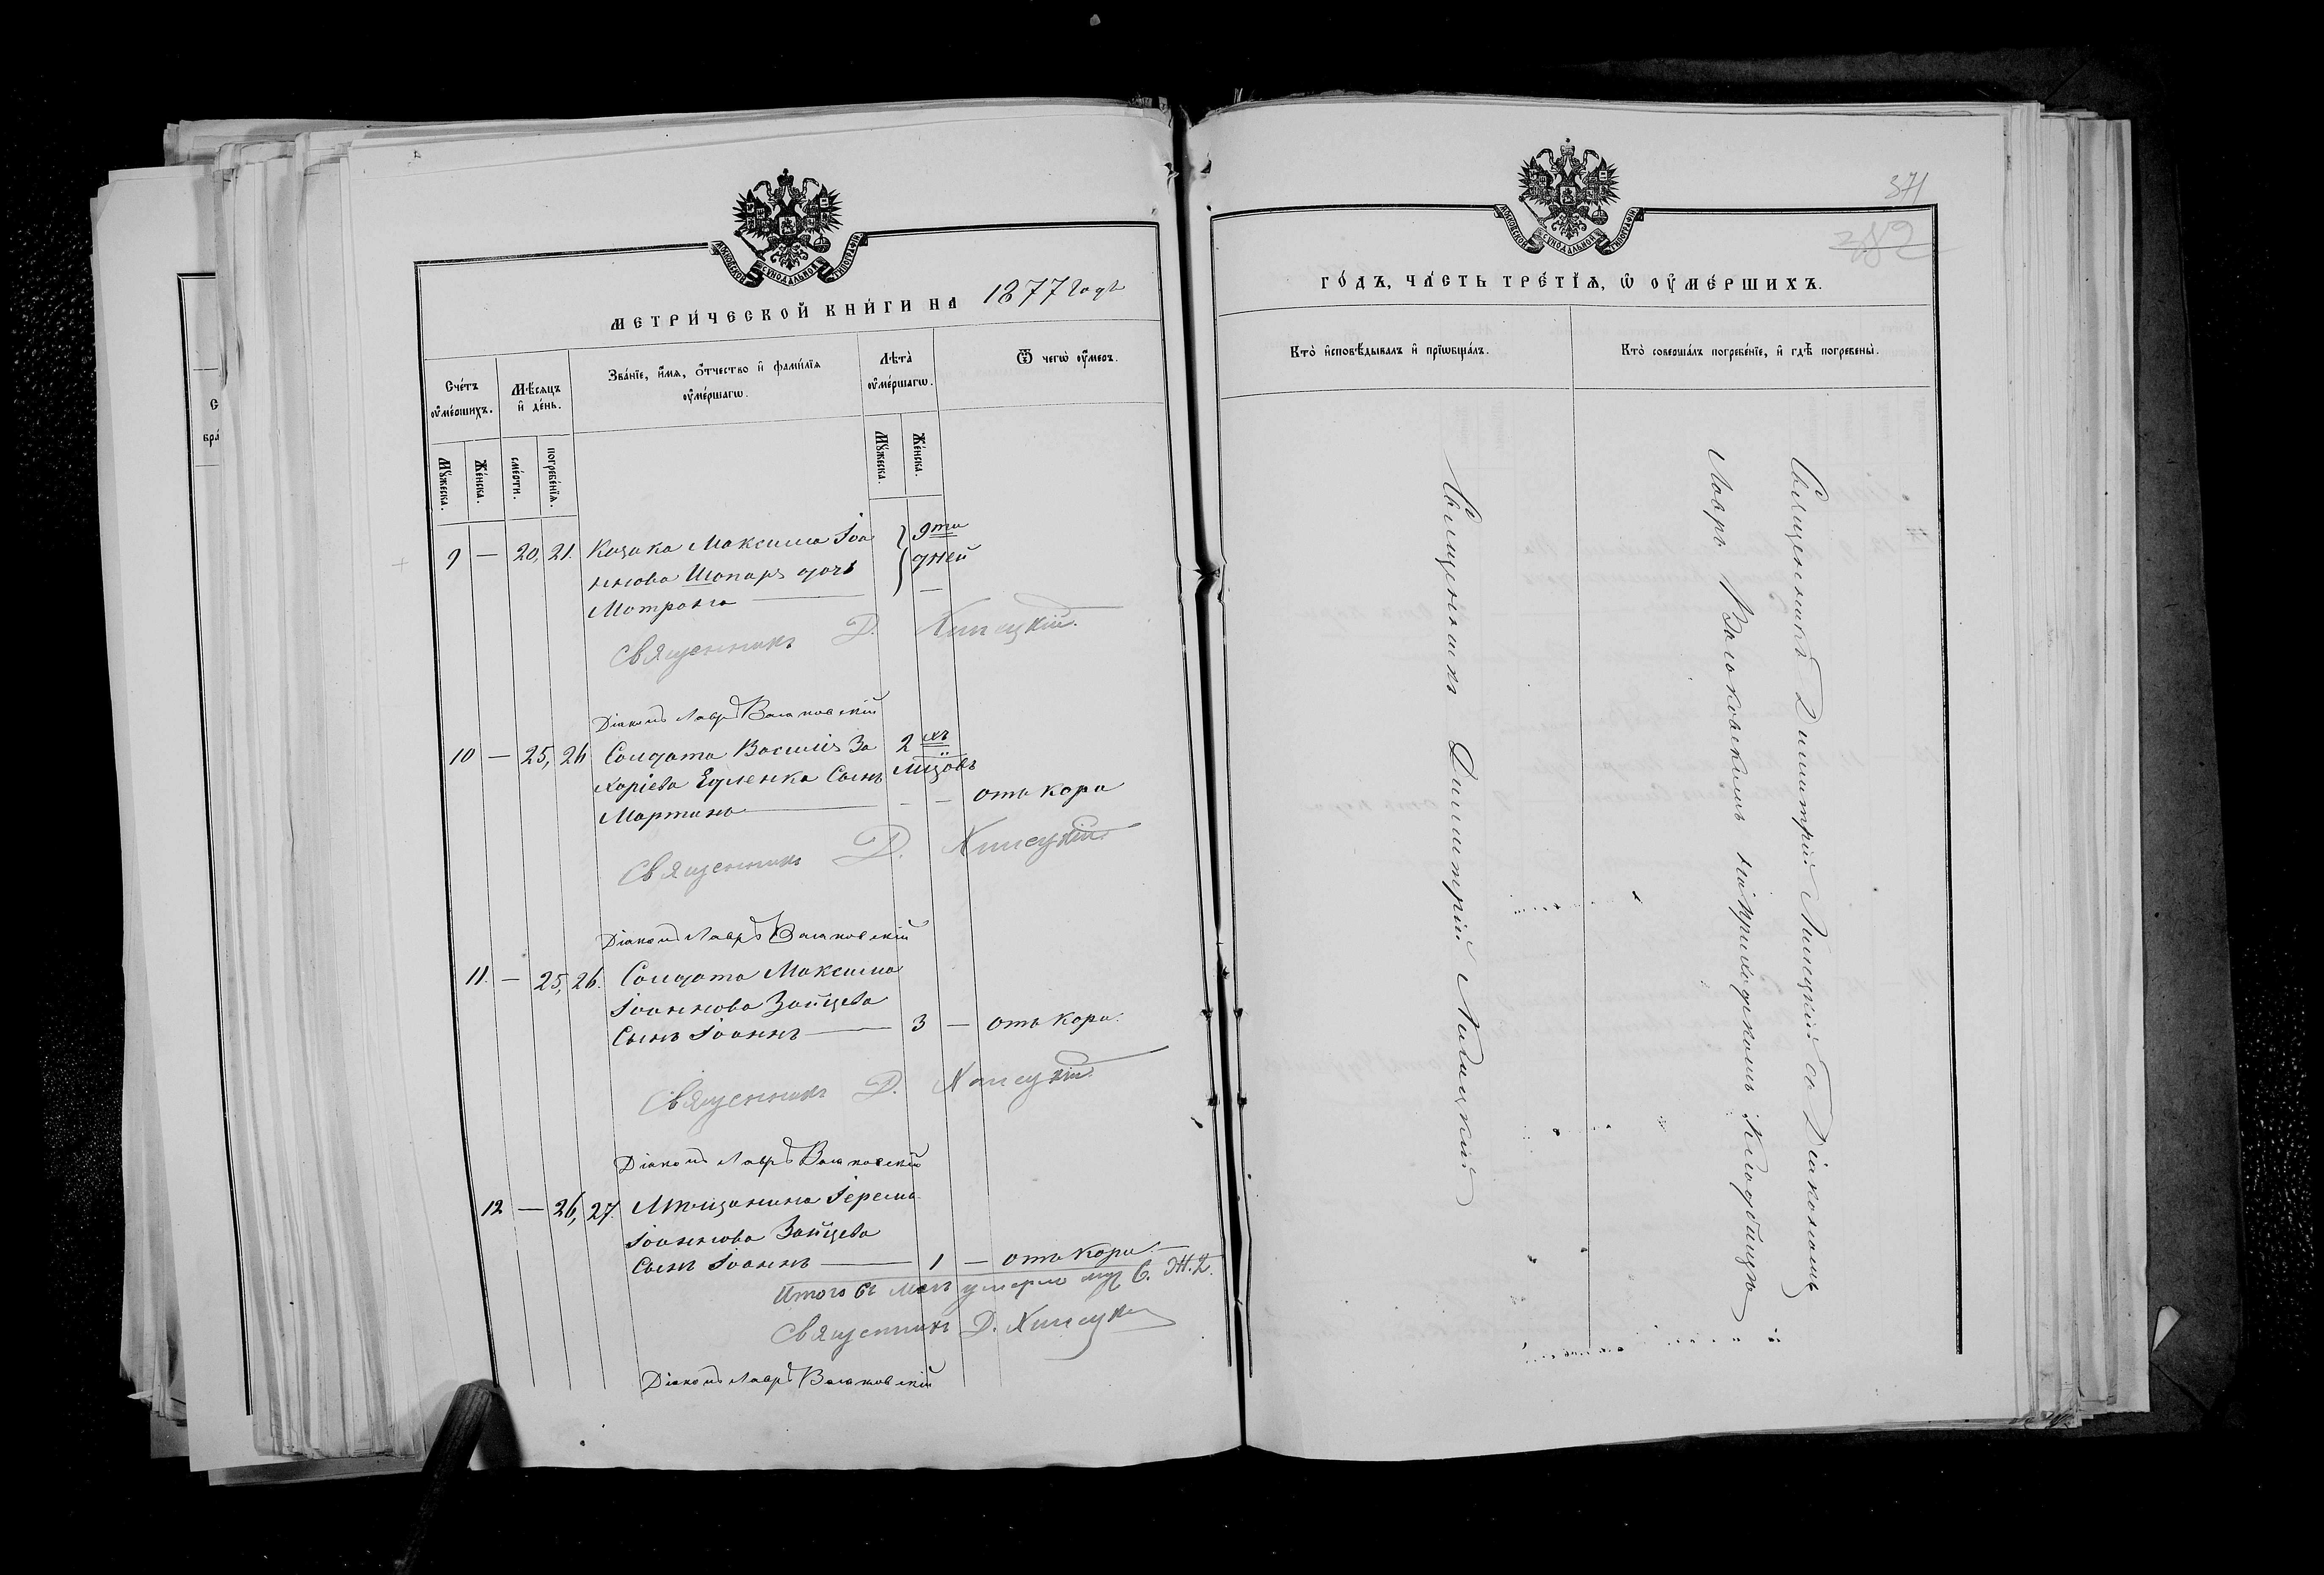 МОСКОВСКОЙ СѴНОДАЛЬНОЙ ТИПОГРАФІИ
МЕТРИ́ЧЕСКОЙ КНИ́ГИ НА 1877 Годъ
Сче́тъ ᲂу҆ме́ршихъ.
Мꙋ́жеска.
Же́нска.
Мѣ́сяцъ и҆ де́нь.
сме́рти.
погребе́нїѧ.
Зва́нїе, и҆́мѧ, ѻ҆́тчество и҆ фами́лїѧ
ᲂу҆ме́ршагѡ.
Лѣ̑та̀
ᲂу҆ме́ршагѡ.
Мꙋ́жеска.
Же́нска.
Ѿ чегѡ̀ ᲂу҆́меръ.
9 — 20, 21. Козака Максима Іоа 9ти
ннова Шопаръ дочь дней
Мотрона —
Священникъ Д. Липецкій.
Діаконъ Лавръ Волоковскій
10 — 25, 26 Солдата Василія За 2хъ
харіева Едленка Сынъ мцовъ
Мартинъ — — отъ кори
Священникъ Д. Липецкій.
Діаконъ Лавръ Волоковскій
11. — 25, 26. Солдата Максима
Іоаннова Зайцева
Сынъ Іоаннъ — 3 — отъ кори.
Священникъ Д. Липецкій.
Діаконъ Лавръ Волоковскій
12 — 26, 27. Мѣщанина Іерема
Іоаннова Зайцева
Сынъ Іоаннъ — 1 — отъ кори.
Итого въ умерло муж 6. Ж. 2.
Священникъ Д. Липецкій
Діаконъ Лавръ Волоковскій
371
382
МОСКОВСКОЙ СѴНОДАЛЬНОЙ ТИПОГРАФІИ
ГО́ДЪ, ЧА́СТЬ ТРЕ́ТЇѦ, Ѡ҆ ОУ҆МЕ́РШИХЪ.
Кто̀ и҆сповѣ́дывалъ и҆ прїѡбща́лъ.
Кто̀ соверша́лъ погребе́нїе, и҆ гдѣ̀ погребены̀.
Священникъ Димитрій Липецкій
Священникъ Димитрій Липецкій съ Діакономъ
Лавръ Волоковскимъ на приходскомъ Кладбищѣ